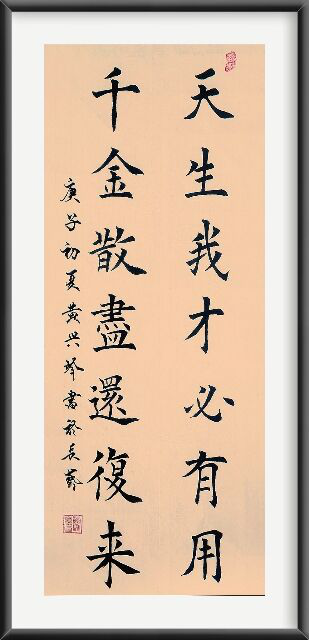 天生我才必有用
千金散盡還復来
庚子初夏黄兴琴書於長